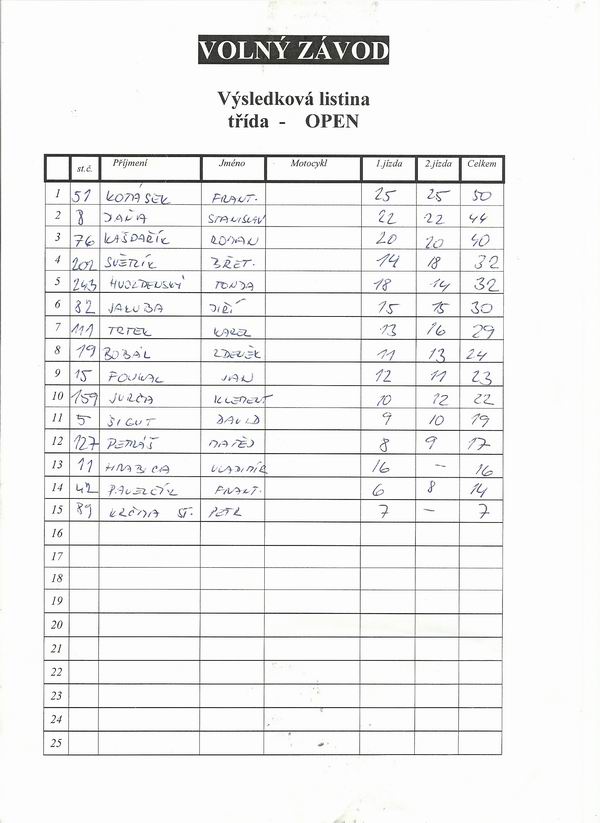 VOLNÝ ZÁVOD
Výsledková listina
třída - OPEN
st.č. Příjmení Jméno Motocykl 1.jízda 2.jízda Celkem
1 51 KOTÁSEK FRANT. 25 25 50
2 8 DAŇA STANISLAV 22 22 44
3 76 KAŠDAŘÍK ROMAN 20 20 40
4 202 SVĚTLÍK BŘET. 14 18 32
5 243 TONDA 18 14 32
6 82 JAKUBA JIŘÍ 15 15 30
7 111 TRTEK KAREL 13 16 29
8 19 BOBÁL ZDENĚK 11 13 24
9 15 FOUKAL JAN 12 11 23
10 159 JURČA KLEMENT 10 12 22
11 5 ŠIGUT DAVID 9 10 19
12 127 PETRÁŠ MATĚJ 8 9 17
13 11 HRABICA VLADIMÍR 16 – 16
14 42 PAVELČÍK FRANT. 6 8 14
15 89 KRČMA ST. PETR 7 – 7
16
17
18
19
20
21
22
23
24
25